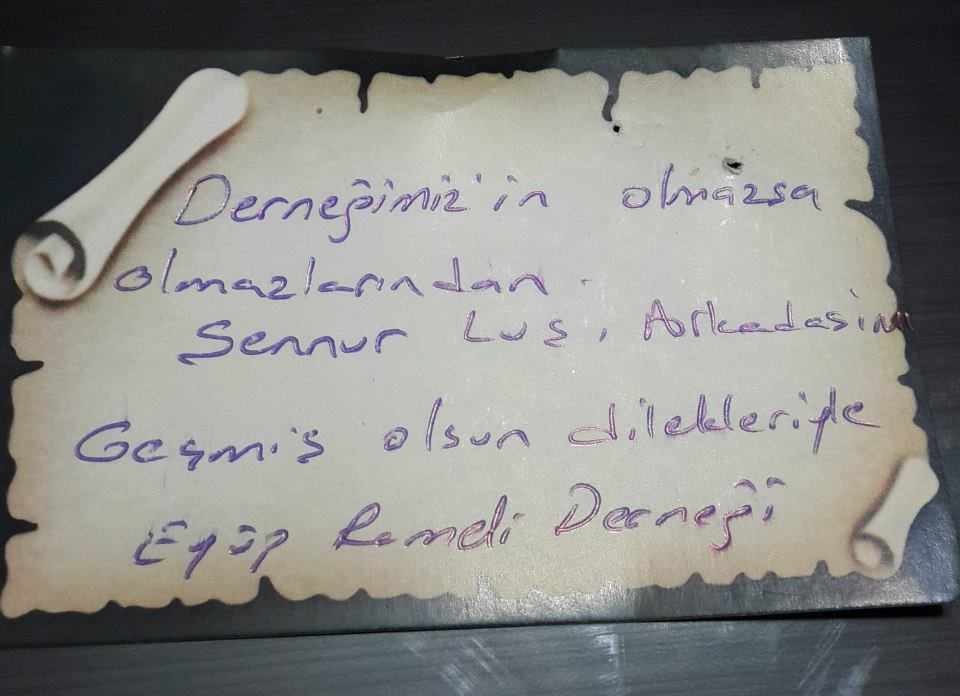 Derneğimiz'in olmazsa
olmazlarından.
Sennur Luş, Arkadasim
Geçmiş olsun dilekleriyle
Eyüp Rumeli Derneği